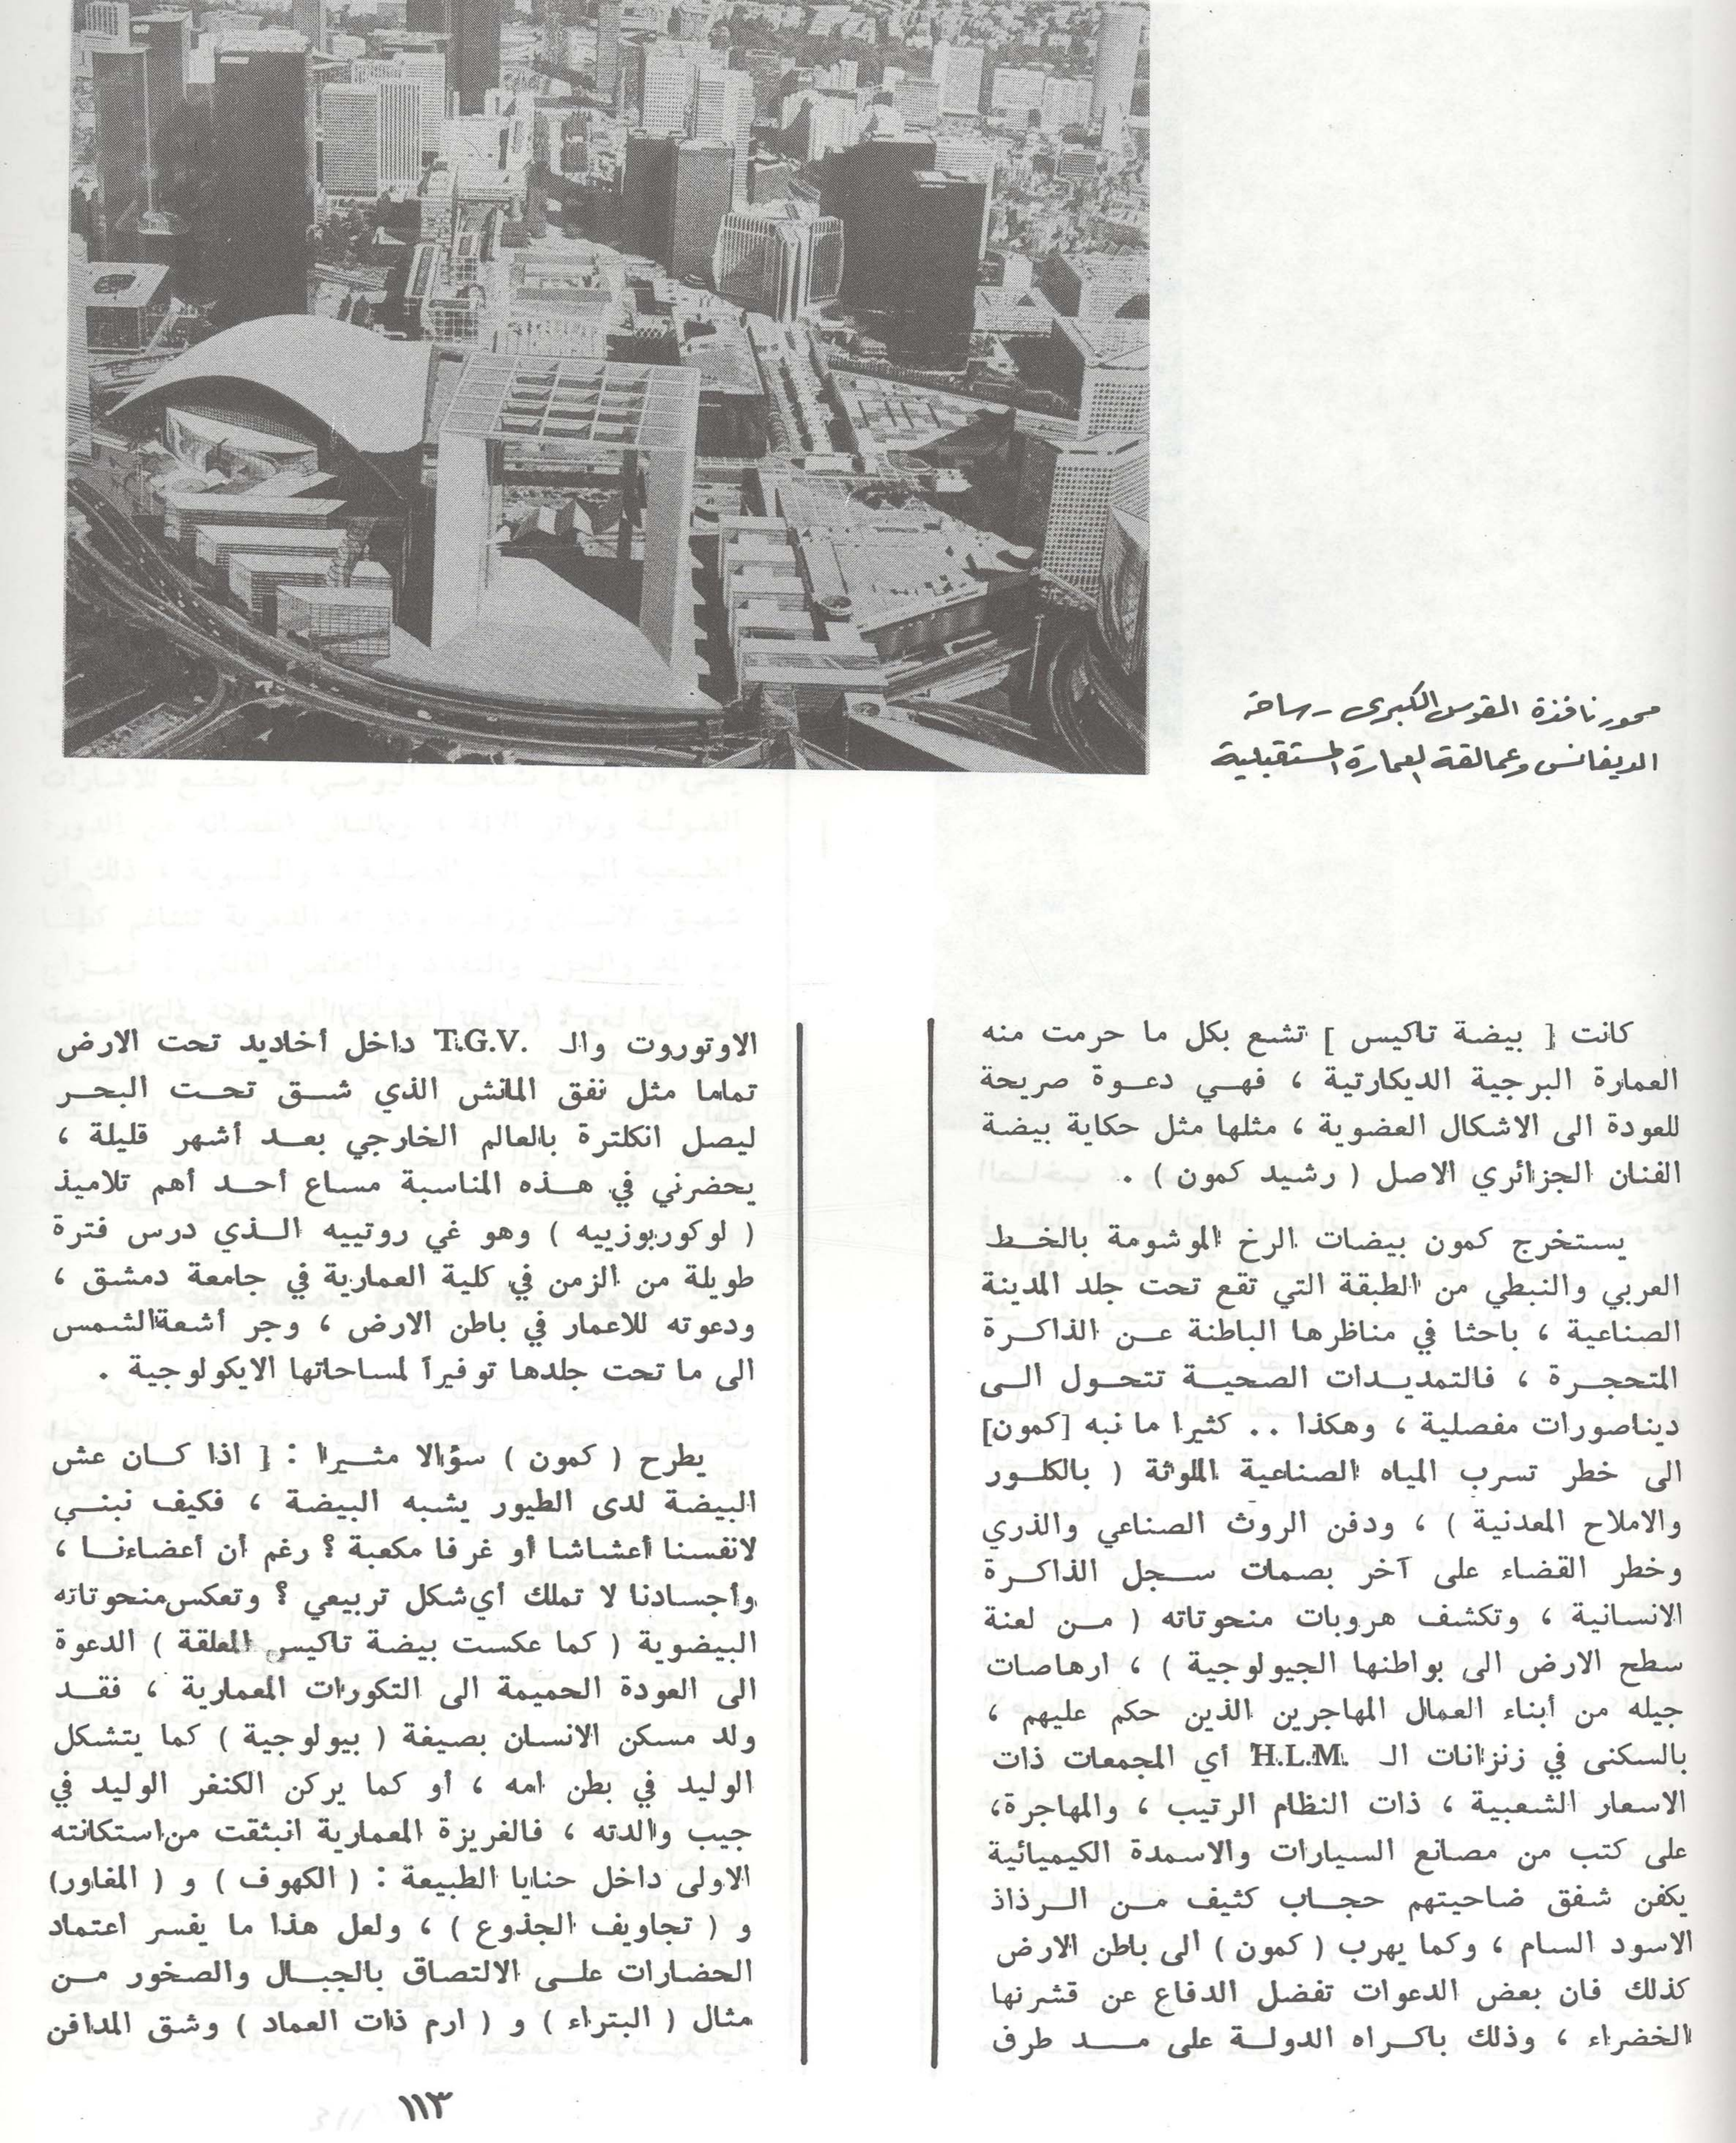 محور نافذة القوس الكبرى - ساحة
الديفانس وعمالقة العمارة المستقبلية
كانت [ بيضة تاكيس ] تشع بكل ما حرمت منه
العمارة البرجية الديكارتية ، فهي دعوة صريحة
للعودة الى الاشكال العضوية ، مثلها مثل حكاية بيضة
الفنان الجزائري الاصل ( رشيد كمون ) .
يستخرج كمون بيضات الرخ الموشومة بالخط
العربي والنبطي من الطبقة التي تقع تحت جلد المدينة
الصناعية ، باحثا في مناظرها الباطنة عن الذاكرة
المتحجرة ، فالتمديدات الصحية تتحول الى
ديناصورات مفصلية ، وهكذا .. كثيرا ما نبه [كمون]
الى خطر تسرب المياه الصناعية الملوثة ( بالكلور
والاملاح المعدنية ) ، ودفن الروث الصناعي والذري
وخطر القضاء على آخر بصمات سجل الذاكرة
الانسانية ، وتكشف هروبات منحوتاته ( من لعنة
سطح الارض الى بواطنها الجيولوجية ) ، ارهاصات
جيله من أبناء العمال المهاجرين الذين حكم عليهم ،
بالسكنى في زنزانات الـ H.L.M. أي المجمعات ذات
الاسعار الشعبية ، ذات النظام الرتيب ، والمهاجرة،
على كتب من مصانع السيارات والاسمدة الكيميائية
يكفن شفق ضاحيتهم حجاب كثيف من الرذاذ
الاسود السام ، وكما يهرب ( كمون ) الى باطن الارض
كذلك فان بعض الدعوات تفضل الدفاع عن قشرتها
الخضراء ، وذلك باكراه الدولة على مد طرف
الاوتوروت والـ T.G.V. داخل أخاديد تحت الارض
تماما مثل نفق المانش الذي شق تحت البحر
ليصل انكلترة بالعالم الخارجي بعد أشهر قليلة ،
يحضرني في هذه المناسبة مساع أحد أهم تلاميذ
( لوكوربوزييه ) وهو غي روتييه الذي درس فترة
طويلة من الزمن في كلية العمارية في جامعة دمشق ،
ودعوته للاعمار في باطن الارض ، وجر أشعة الشمس
الى ما تحت جلدها توفيراً لمساحاتها الايكولوجية .
يطرح ( كمون ) سؤالا مثيرا : [ اذا كان عش
البيضة لدى الطيور يشبه البيضة ، فكيف نبني
لانفسنا أعشاشا أو غرفا مكعبة ؟ رغم أن أعضاءنا ،
وأجسادنا لا تملك أي شكل تربيعي ؟ وتعكس منحوتاته
البيضوية ( كما عكست بيضة تاكيس المعلقة ) الدعوة
الى العودة الحميمة الى التكورات المعمارية ، فقد
ولد مسكن الانسان بصيغة ( بيولوجية ) كما يتشكل
الوليد في بطن امه ، أو كما يركن الكنغر الوليد في
جيب والدته ، فالغريزة المعمارية انبثقت من استكانته
الاولى داخل حنايا الطبيعة : ( الكهوف ) و ( المغاور)
و ( تجاويف الجذوع ) ، ولعل هذا ما يفسر اعتماد
الحضارات على الالتصاق بالجبال والصخور من
مثال ( البتراء ) و ( ارم ذات العماد ) وشق المدافن
١١٣